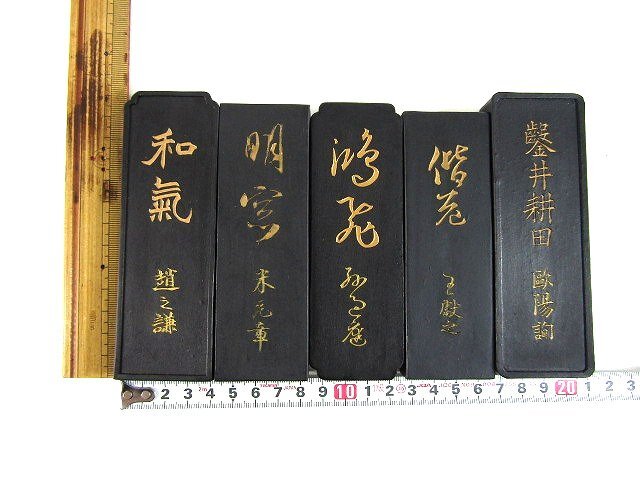 和氣
趙之謙
明窓
米元章
鴻飛
孫過庭
偕老
王殿之
鑿井耕田
歐陽詢
2 3 4 5 6 7 8 9 10 1 2 3 4 5 6 7 8 9 20 1 2 3